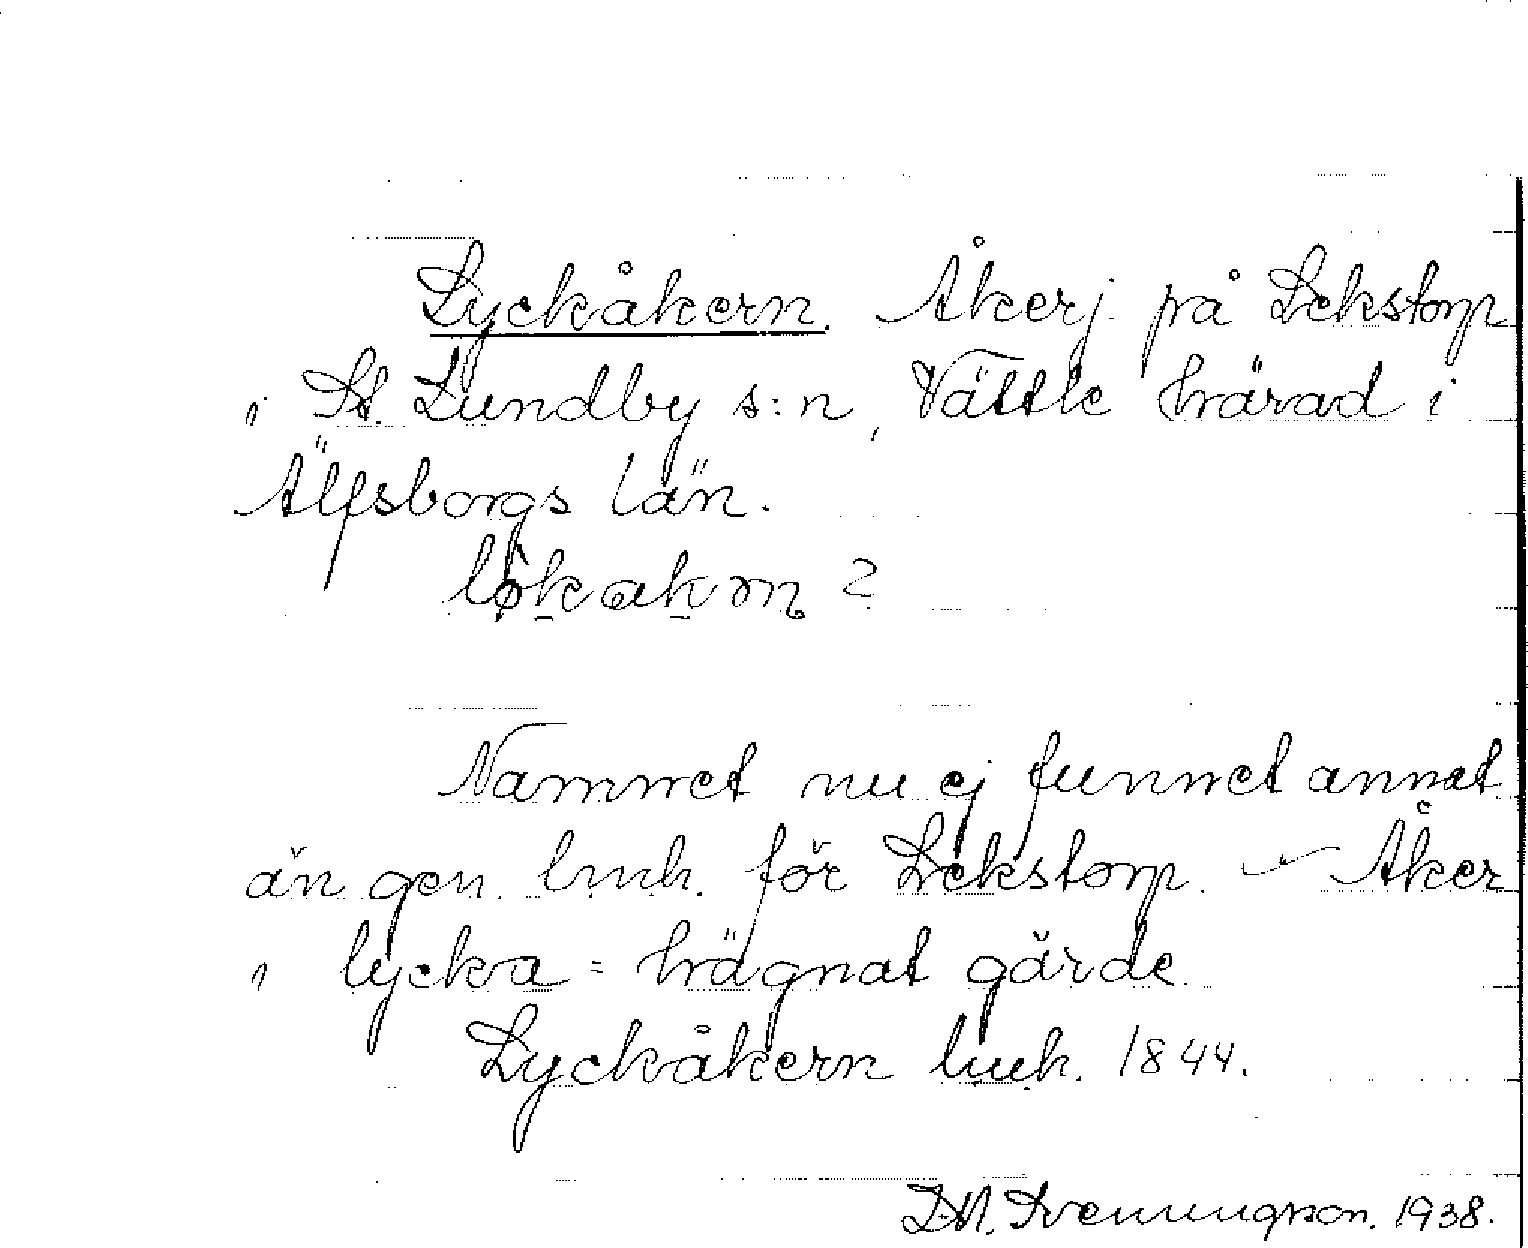 Lyckåkern. Åkerj. på Lekstorp
i St. Lundby s:n, Vättle härad i
Älfsborgs län.
løkakɘrn ?
Namnet nu ej funnet annat
än gen. lmk. för Lekstorp. – Åker
i lycka = hägnat gärde.
Lyckåkern lmk. 1844.
D.N. Svenningsson. 1938.